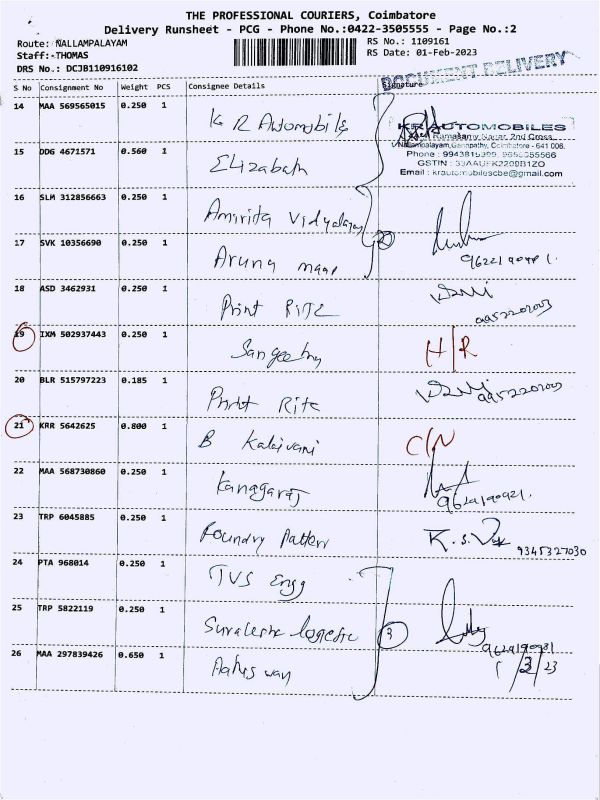 THE PROFESSIONAL COURIERS, Coimbatore
Delivery Runsheet - PCG - Phone No.:0422-3505555 - Page No.:2
Route: NALLAMPALAYAM RS No.: 1109161
Staff: THOMAS RS Date: 01-Feb-2023
DRS No.: DCJB110916102
DOCUMENT DELIVERY
S No Consignment No Weight PCS Consignee Details Signature
14 MAA 569565015 0.250 1 K R Automobile
KR AUTOMOBILES
Ramasamy Nagar, 2nd Cross
Nallampalayam, Ganapathy, Coimbatore - 641 006.
Phone :
GSTIN : 33AAUFK2209B1ZO
Email : krautomobilescbe@gmail.com
15 DDG 4671571 0.560 1 Elizabath
16 SLM 312856663 0.250 1 Amirita
17 SVK 10356690 0.250 1 Aruna
18 ASD 3462931 0.250 1 Print Rite
19 IXM 502937443 0.250 1 H/R
20 BLR 515797223 0.185 1 Print Rite
21 KRR 5642625 0.800 1 B Kalaivani C/N
22 MAA 568730860 0.250 1 Kanagaraj
23 TRP 6045885 0.250 1 Foundry Pattern 9345327030
24 PTA 968014 0.250 1 TVS Engg
25 TRP 5822119 0.250 1 3
26 MAA 297839426 0.650 1